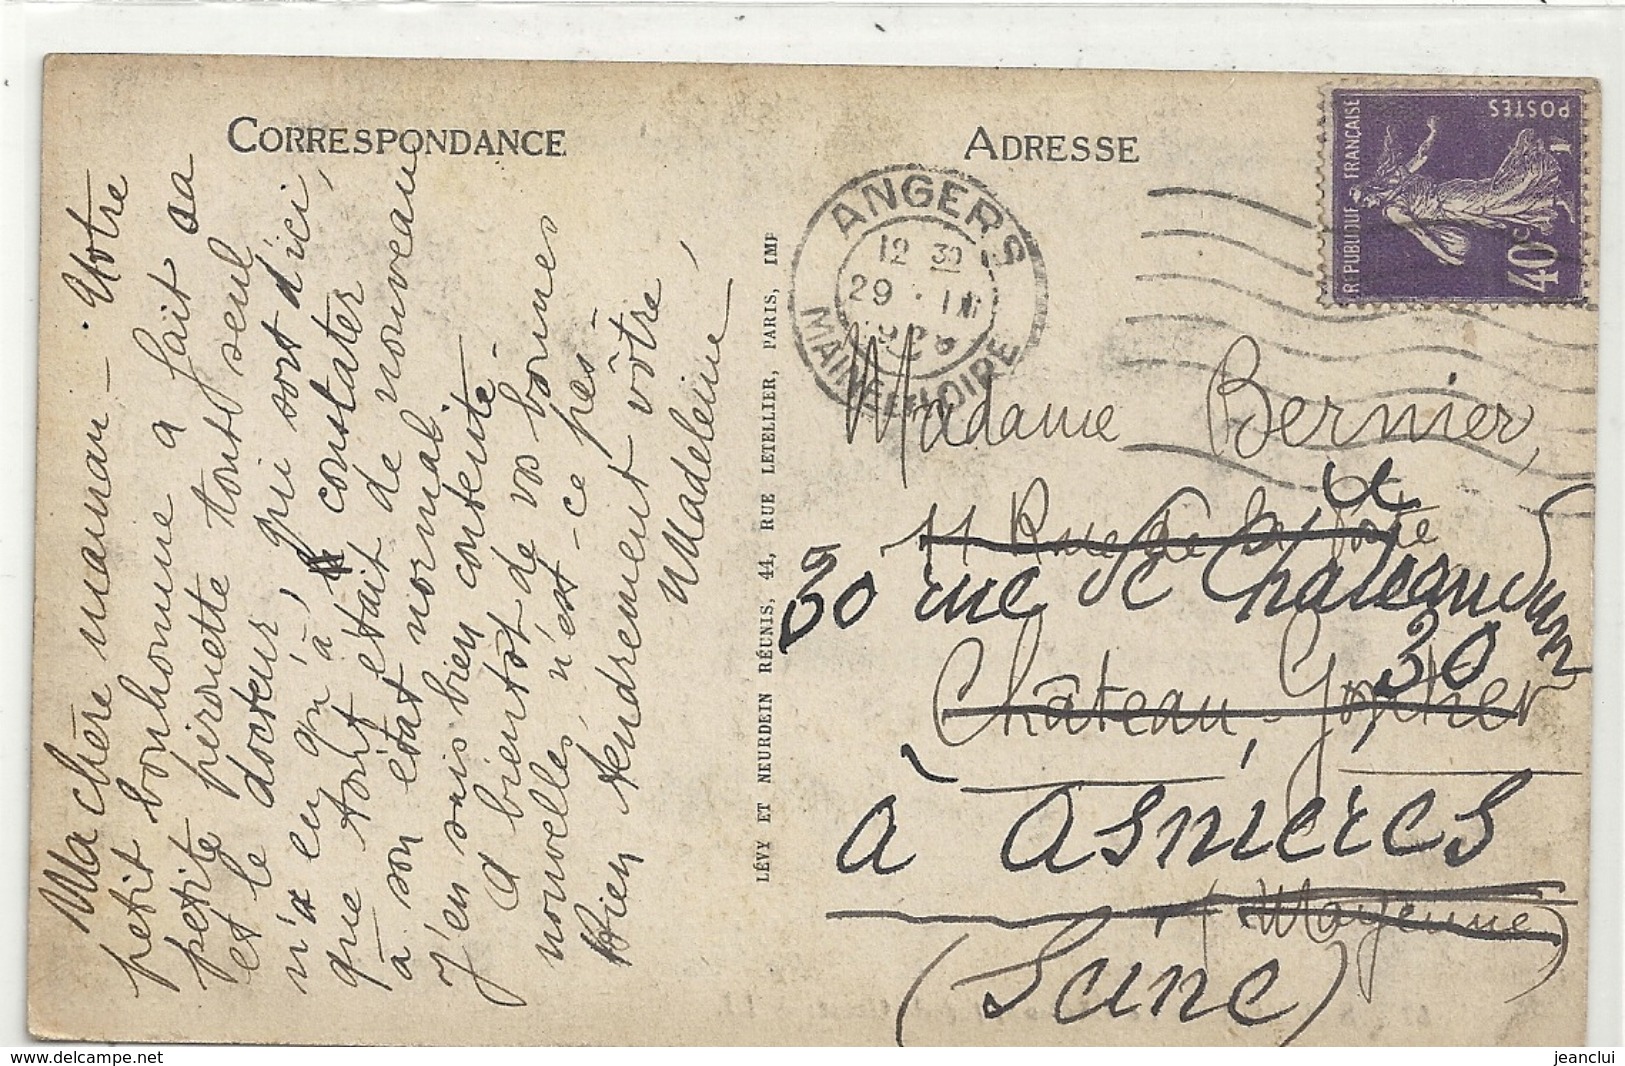 CORRESPONDANCE
Ma chère maman - Votre
petit bonhomme a fait sa
petite pirouette tout seul
et le docteur, qui sort d'ici,
n'a eu qu'à constater
que tout était de nouveau
à son état normal
J'en suis bien contente -
A bientôt de vos bonnes
nouvelles, n'est-ce pas -
Bien tendrement vôtre,
Madeleine,
LÉVY ET NEURDEIN RÉUNIS, 44, RUE LETELLIER, PARIS, IMP
ADRESSE
ANGERS
12 30
29 · III
MAINE-ET-LOIRE
RÉPUBLIQUE FRANÇAISE
POSTES
40c
Madame Bernier,
11 Rue de
30 rue de Chateaudun
30
Château-Gontier
à Asnieres
(Mayenne)
(Seine)
jeanclui